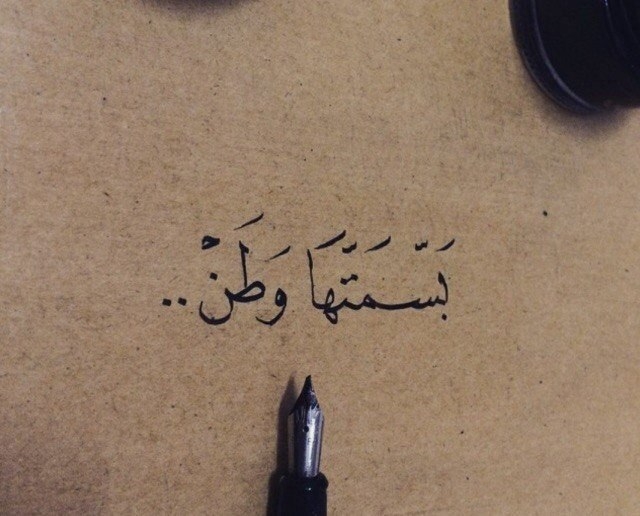 بَسّمَتَّهَا وَطَنْ..